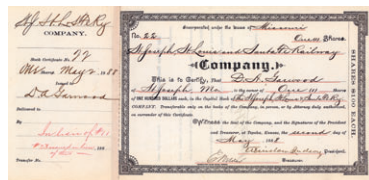 St J St L & S Fe Ry
COMPANY.
Stock Certificate No. 22
Date May 2 1888
Issued to
D. A. Garwood
Delivered to
By
In lieu of #11
Transfer No.
Incorporated under the Laws of Missouri
No. 22
One Shares
St Joseph St Louis and Santa Fe Railway
Company.
This is to Certify, That D. A. Garwood
of St Joseph Mo is the owner of One Shares
of ONE HUNDRED DOLLARS each, in the Capital Stock of the St Joseph St Louis & Santa Fe Ry
COMPANY. Transferable only on the books of the Company, in person, or by Attorney duly authorized,
on surrender of this Certificate.
Witness the Seal of the Company, and the Signatures of the President
and Treasurer, at Topeka, Kansas, this second day of
May 1888
President.
Treasurer.
SHARES $100 EACH.